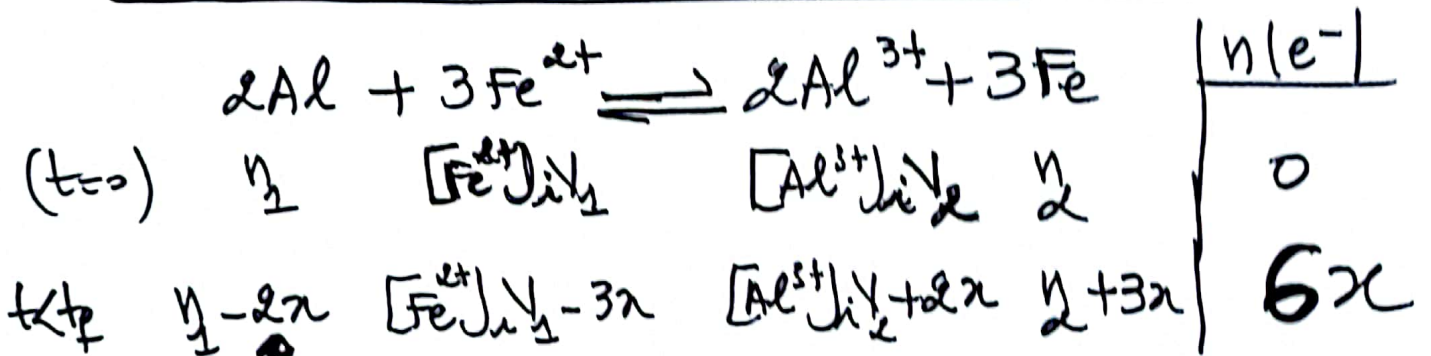 2Al + 3Fe²⁺ ⇌ 2Al³⁺ + 3Fe | n(e⁻)
(t=0) n₁ [Fe²⁺]ᵢV₁ [Al³⁺]ᵢV₂ n₂ | 0
t<tf n₁-2x [Fe²⁺]ᵢV₁-3x [Al³⁺]ᵢV₂+2x n₂+3x | 6x